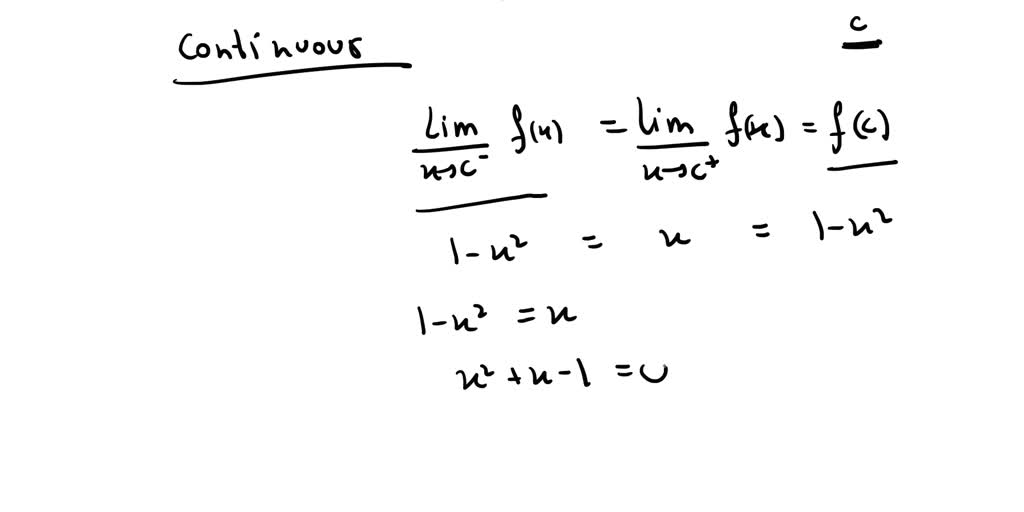 continuous
c
lim x→c⁻ f(x) = lim x→c⁺ f(x) = f(c)
1-x² = x = 1-x²
1-x² = x
x² + x - 1 = 0